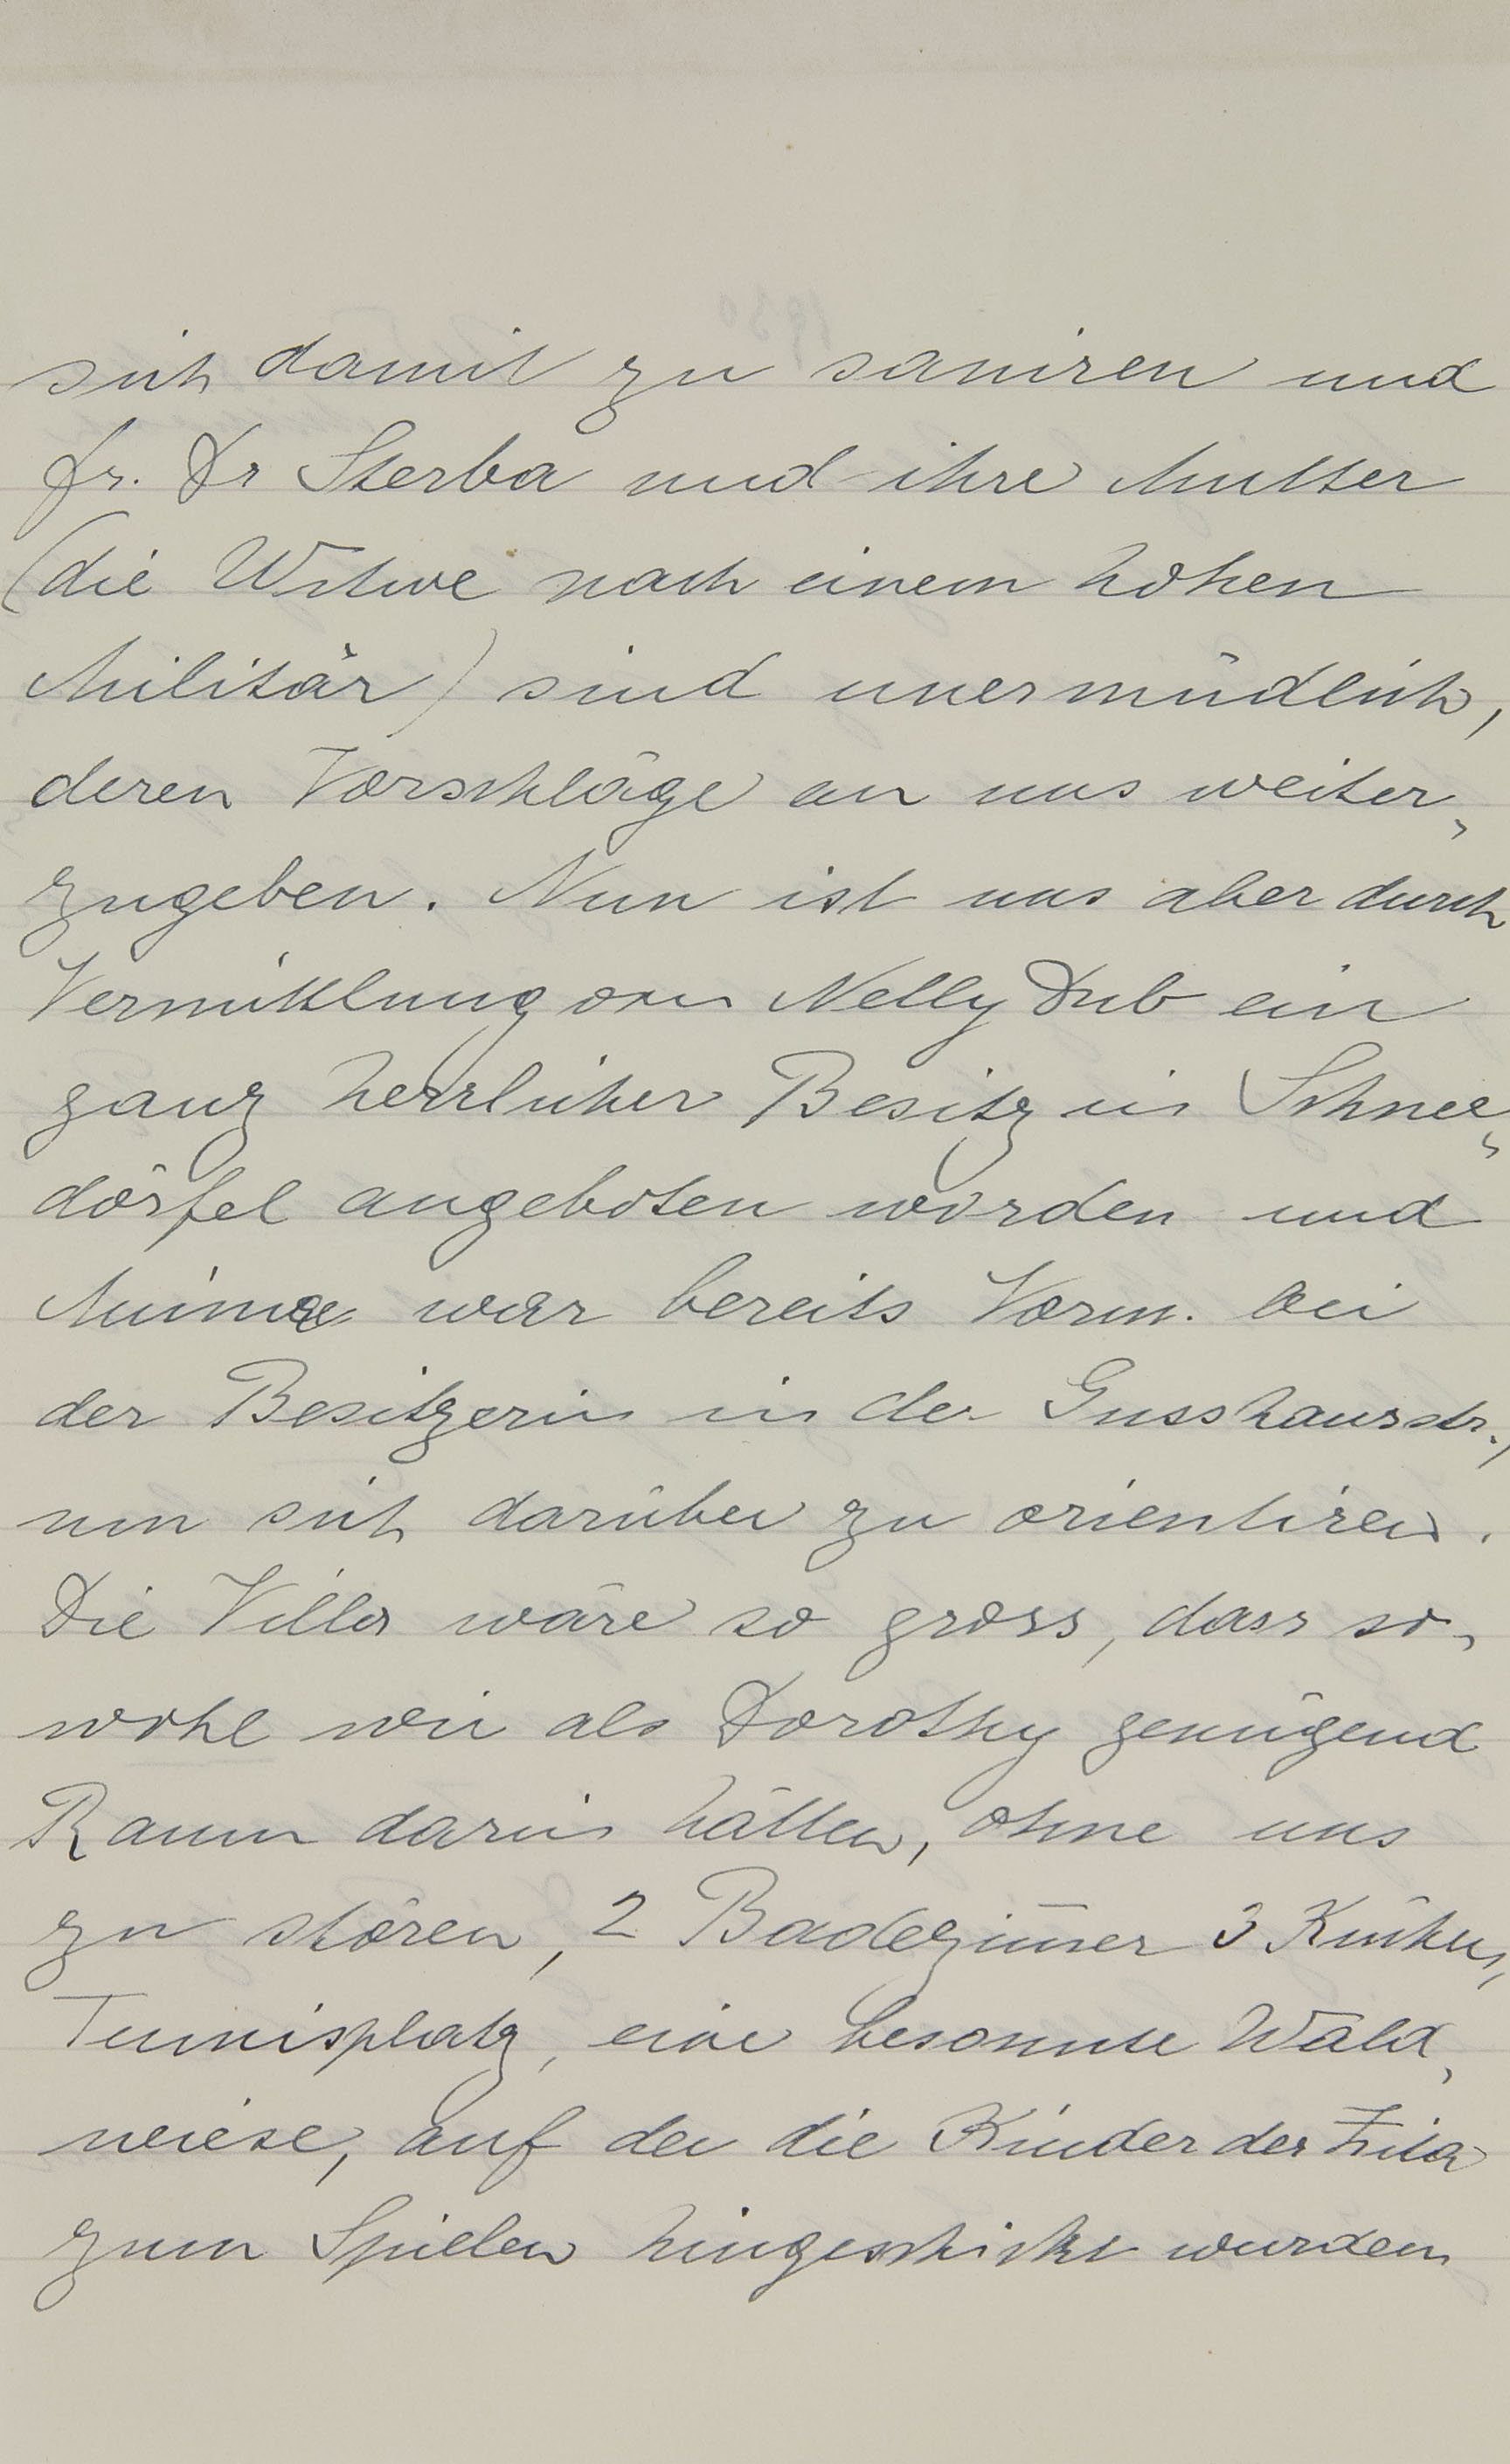 sich damit zu saniren und
Fr. Dr Sterba und ihre Mutter
(die Witwe nach einem hohen
Militär) sind unermüdlich,
deren Vorschläge an uns weiter-
zugeben. Nun ist uns aber durch
Vermittlung von Nelly Dub ein
ganz herrlicher Besitz in Schnee-
dörfel angeboten worden und
Minna war bereits Vorm. bei
der Besitzerin in der Gusshausstr.,
um sich darüber zu orientiren.
Die Villa wäre so gross, dass so-
wohl wir als Dorothy genügend
Raum darin hätten, ohne uns
zu stören, 2 Badezim̄er 3 Küchen,
Tennisplatz, eine besonnte Wald-
wiese, auf der die Kinder der Zita
zum Spielen hingeschickt wurden